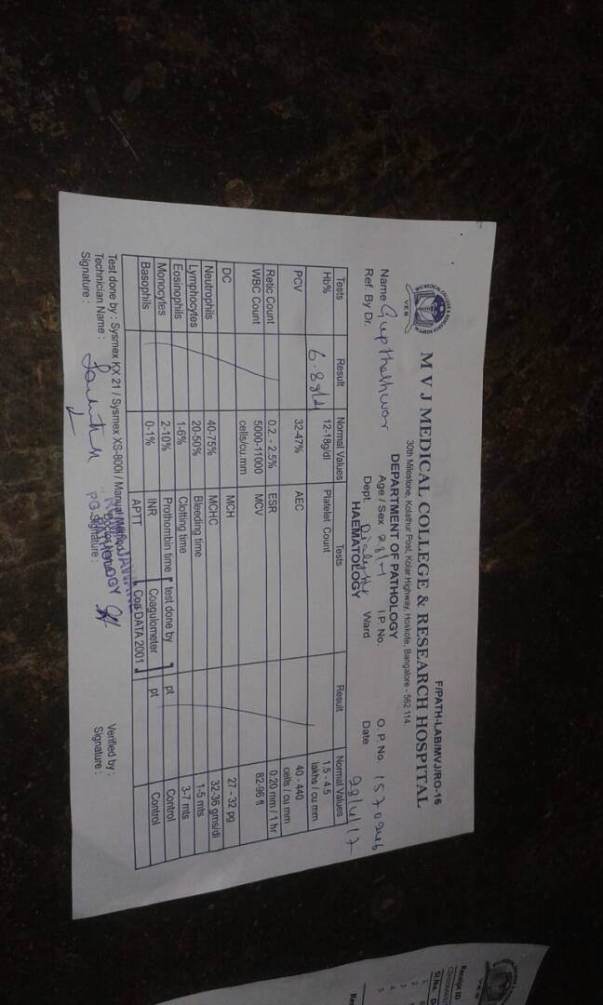 F/PATH-LAB/MVJ/RO-16
M V J MEDICAL COLLEGE & RESEARCH HOSPITAL
30th Milestone, Kolathur Post, Kolar Highway, Hoskote, Bangalore - 562 114.
DEPARTMENT OF PATHOLOGY
HAEMATOLOGY
Name Age / Sex 28/ I.P. No. O. P. No. 1570946
Ref. By Dr. Dept. Ward Date 28/4/17
Tests Result Normal Values Tests Result Normal Values
Hb% 6.8g/dl 12-18g/dl Platelet Count 1.5 - 4.5 lakhs / cu mm
PCV 32-47% AEC 40 - 440 cells / cu mm
Retic Count 0.2 - 2.5% ESR 0.20 mm / 1 hr
WBC Count 5000-11000 cells/cu.mm MCV 82-96 fl
DC MCH 27 - 32 pg
Neutrophils 40-75% MCHC 32-36 gms/dl
Lymphocytes 20-50% Bleeding time 1-5 mts
Eosinophils 1-6% Clotting time 3-7 mts
Monocytes 2-10% Prothombin time test done by pt Control
Basophils 0-1% INR Coagulometer pt Control
APTT Coa DATA 2001
Test done by : Sysmex KX 21 / Sysmex XS-800i / Manual
Technician Name : Verified by :
Signature : PG Signature : Signature :
Receipt ID
Sl.No.